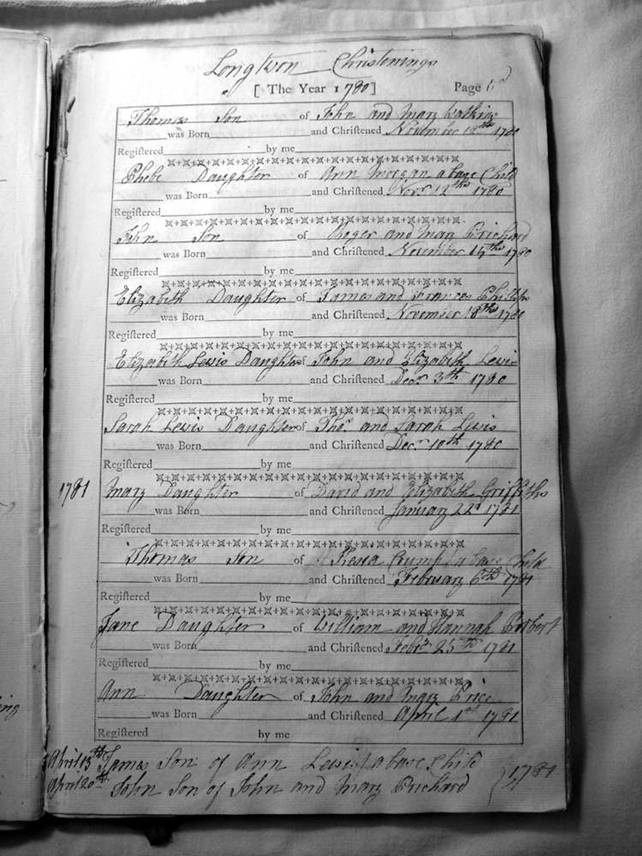 Longtown Christenings
[ The Year 1780 ] Page
Thomas Son of John and Mary Watkins
was Born and Christened November 12th 1780
Registered by me
Phebe Daughter of Ann Morgan a base Child
was Born and Christened Novr 12th 1780
Registered by me
John Son of Roger and Mary Prichard
was Born and Christened November 15th 1780
Registered by me
Elizabeth Daughter of James and Frances Philips
was Born and Christened November 18th 1780
Registered by me
Elizabeth Lewis Daughter of John and Elizabeth Lewis
was Born and Christened Decr 3th 1780
Registered by me
Sarah Lewis Daughter of Thos and Sarah Lewis
was Born and Christened Decr 10th 1780
Registered by me
1781 Mary Daughter of David and Elizabeth Griffiths
was Born and Christened January 22d 1781
Registered by me
Thomas Son of Crump a base Child
was Born and Christened February 6th 1781
Registered by me
Jane Daughter of William and Hannah
was Born and Christened Febr 25th 1781
Registered by me
Ann Daughter of John and Mary Price
was Born and Christened April 1st 1781
Registered by me
April 13th James Son of Ann Lewis a base Child
April 20th John Son of John and Mary Prichard } 1781